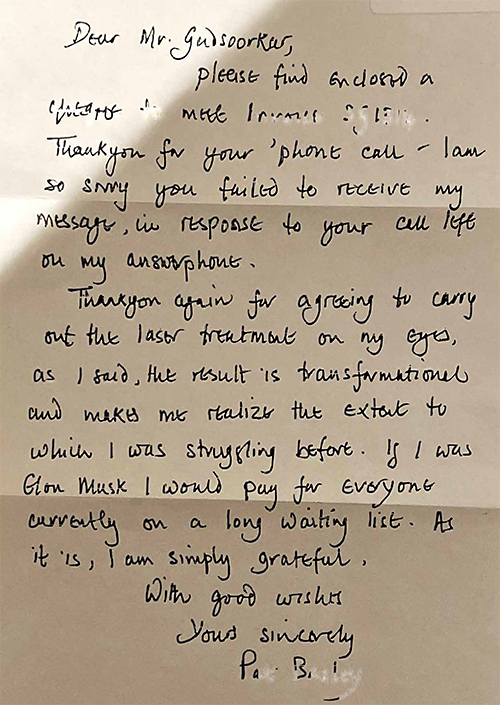 Dear Mr. Gudsoorkar,
please find enclosed a
cheque to meet Invoice
Thankyou for your 'phone call – I am
so sorry you failed to receive my
message, in response to your call left
on my answerphone.
Thankyou again for agreeing to carry
out the laser treatment on my eyes,
as I said, the result is transformational
and makes me realize the extent to
which I was struggling before. If I was
Elon Musk I would pay for everyone
currently on a long waiting list. As
it is, I am simply grateful.
With good wishes
Yours sincerely